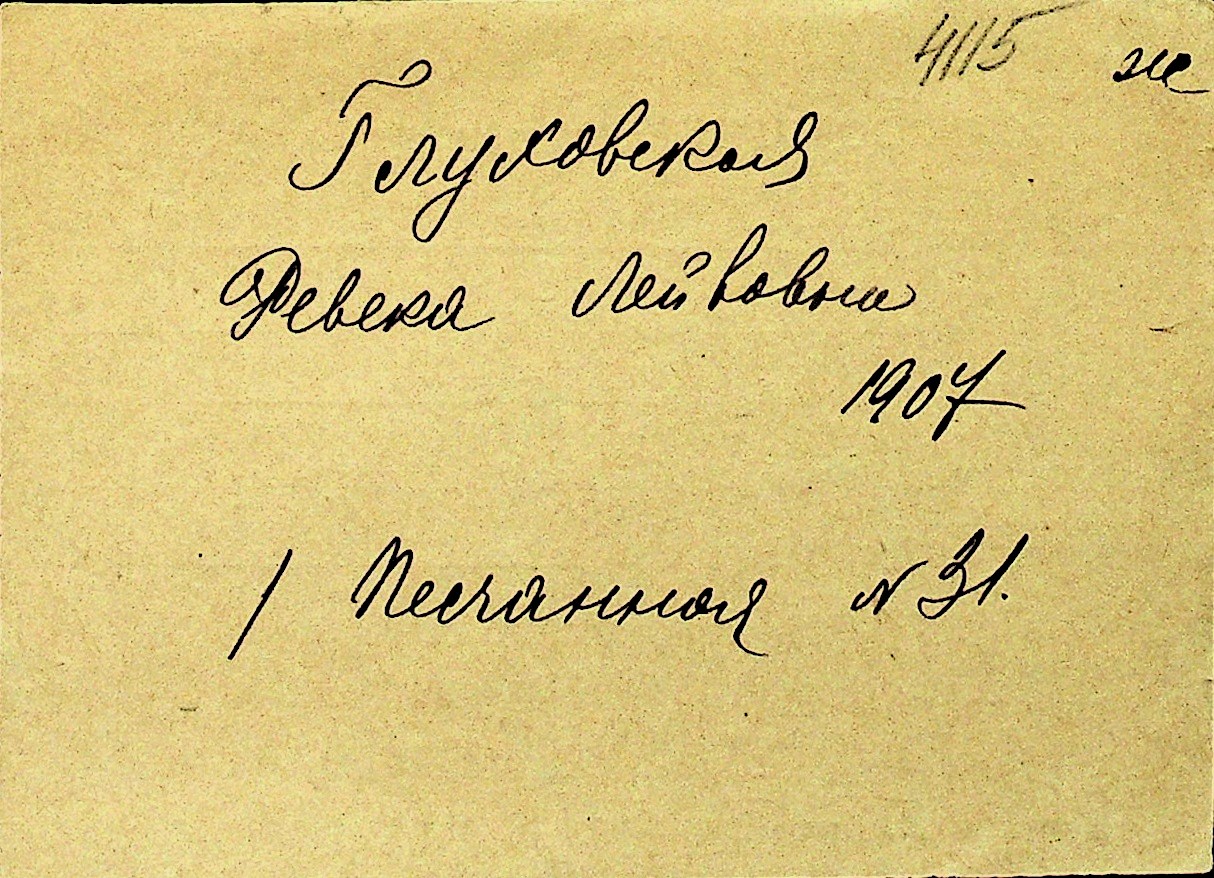 4115 же
Глуховская
Ревека Лейвовна
1907
/ Песчанная № 31.